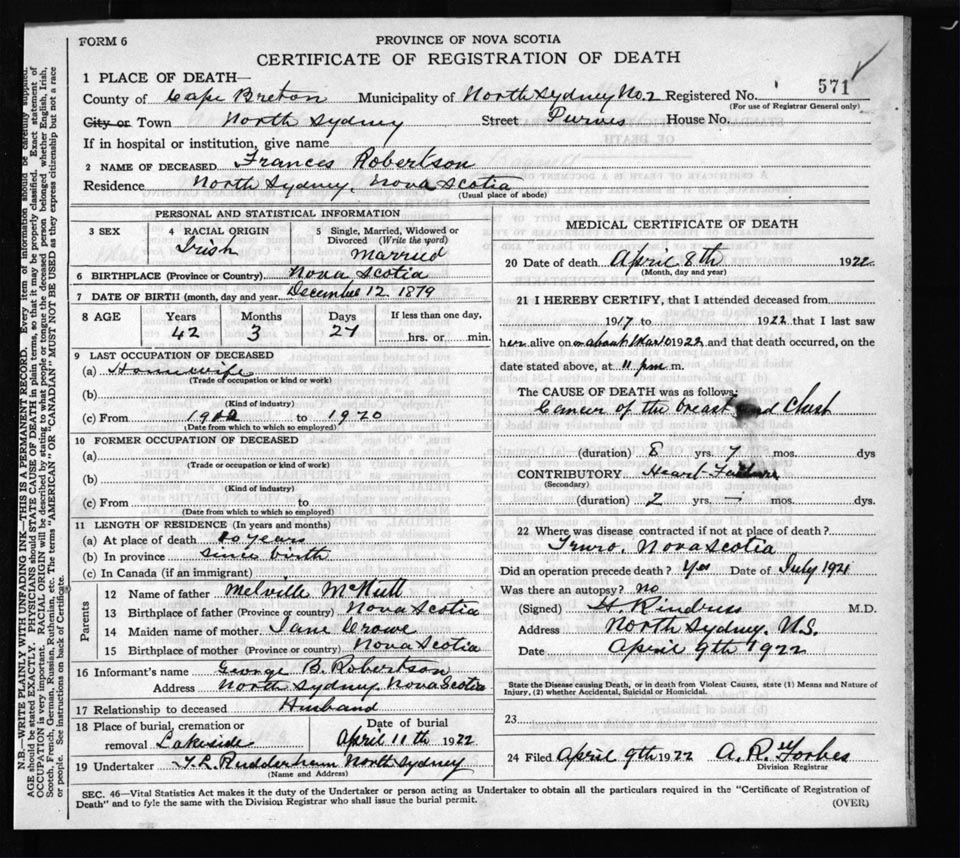 FORM 6
PROVINCE OF NOVA SCOTIA
CERTIFICATE OF REGISTRATION OF DEATH
571
1 PLACE OF DEATH—
County of Cape Breton Municipality of North Sydney No. 2 Registered No.
(For use of Registrar General only)
City or Town North Sydney Street Purves House No.
If in hospital or institution, give name
2 NAME OF DECEASED Frances Robertson
Residence North Sydney, Nova Scotia
(Usual place of abode)
PERSONAL AND STATISTICAL INFORMATION
3 SEX
4 RACIAL ORIGIN
Irish
5 Single, Married, Widowed or Divorced (Write the word)
Married
6 BIRTHPLACE (Province or Country) Nova Scotia
7 DATE OF BIRTH (month, day and year) December 12, 1879
8 AGE Years Months Days If less than one day,
42 3 27 hrs. or min.
9 LAST OCCUPATION OF DECEASED
(a) Housewife
(Trade of occupation or kind or work)
(b)
(Kind of industry)
(c) From to 1920
(Date from which to which so employed)
10 FORMER OCCUPATION OF DECEASED
(a)
(Trade of occupation or kind or work)
(b)
(Kind of industry)
(c) From to
(Date from which to which so employed)
11 LENGTH OF RESIDENCE (In years and months)
(a) At place of death years
(b) In province since birth
(c) In Canada (if an immigrant)
Parents
12 Name of father Melville McNutt
13 Birthplace of father (Province or country) Nova Scotia
14 Maiden name of mother Jane Crowe
15 Birthplace of mother (Province or country) Nova Scotia
16 Informant's name George B. Robertson
Address North Sydney Nova Scotia
17 Relationship to deceased Husband
18 Place of burial, cremation or removal Lakeside
Date of burial April 11th 1922
19 Undertaker Rudderham North Sydney
(Name and Address)
MEDICAL CERTIFICATE OF DEATH
20 Date of death April 8th 1922
(Month, day and year)
21 I HEREBY CERTIFY, that I attended deceased from
1917 to 1922 that I last saw
her alive on about 1922 and that death occurred, on the
date stated above, at 11 pm m.
The CAUSE OF DEATH was as follows:
Cancer of the breast and chest
(duration) 8 yrs. 7 mos. dys
CONTRIBUTORY Heart Failure
(Secondary)
(duration) 2 yrs. — mos. dys.
22 Where was disease contracted if not at place of death?
Truro, Nova Scotia
Did an operation precede death? Yes Date of July 1921
Was there an autopsy? No
(Signed) M.D.
Address North Sydney, N.S.
Date April 9th 1922
State the Disease causing Death, or in death from Violent Causes, state (1) Means and Nature of
Injury, (2) whether Accidental, Suicidal or Homicidal.
23
24 Filed April 9th 1922 A. R. Forbes
Division Registrar
SEC. 46—Vital Statistics Act makes it the duty of the Undertaker or person acting as Undertaker to obtain all the particulars required in the "Certificate of Registration of
Death" and to fyle the same with the Division Registrar who shall issue the burial permit.
(OVER)
N.B.—WRITE PLAINLY WITH UNFADING INK—THIS IS A PERMANENT RECORD. Every item of information should be carefully supplied.
AGE should be stated EXACTLY. PHYSICIANS should STATE CAUSE OF DEATH in plain terms, so that it may be properly classified. Exact statement of
OCCUPATION is very important. RACIAL ORIGIN will be described by stating to what people or tongue the deceased person belonged whether English, Irish,
Scotch, French, German, Russian, Ruthenian, etc. The terms "AMERICAN" OR "CANADIAN" MUST NOT BE USED as they express citizenship but not a race
or people. See instructions on back of Certificate.